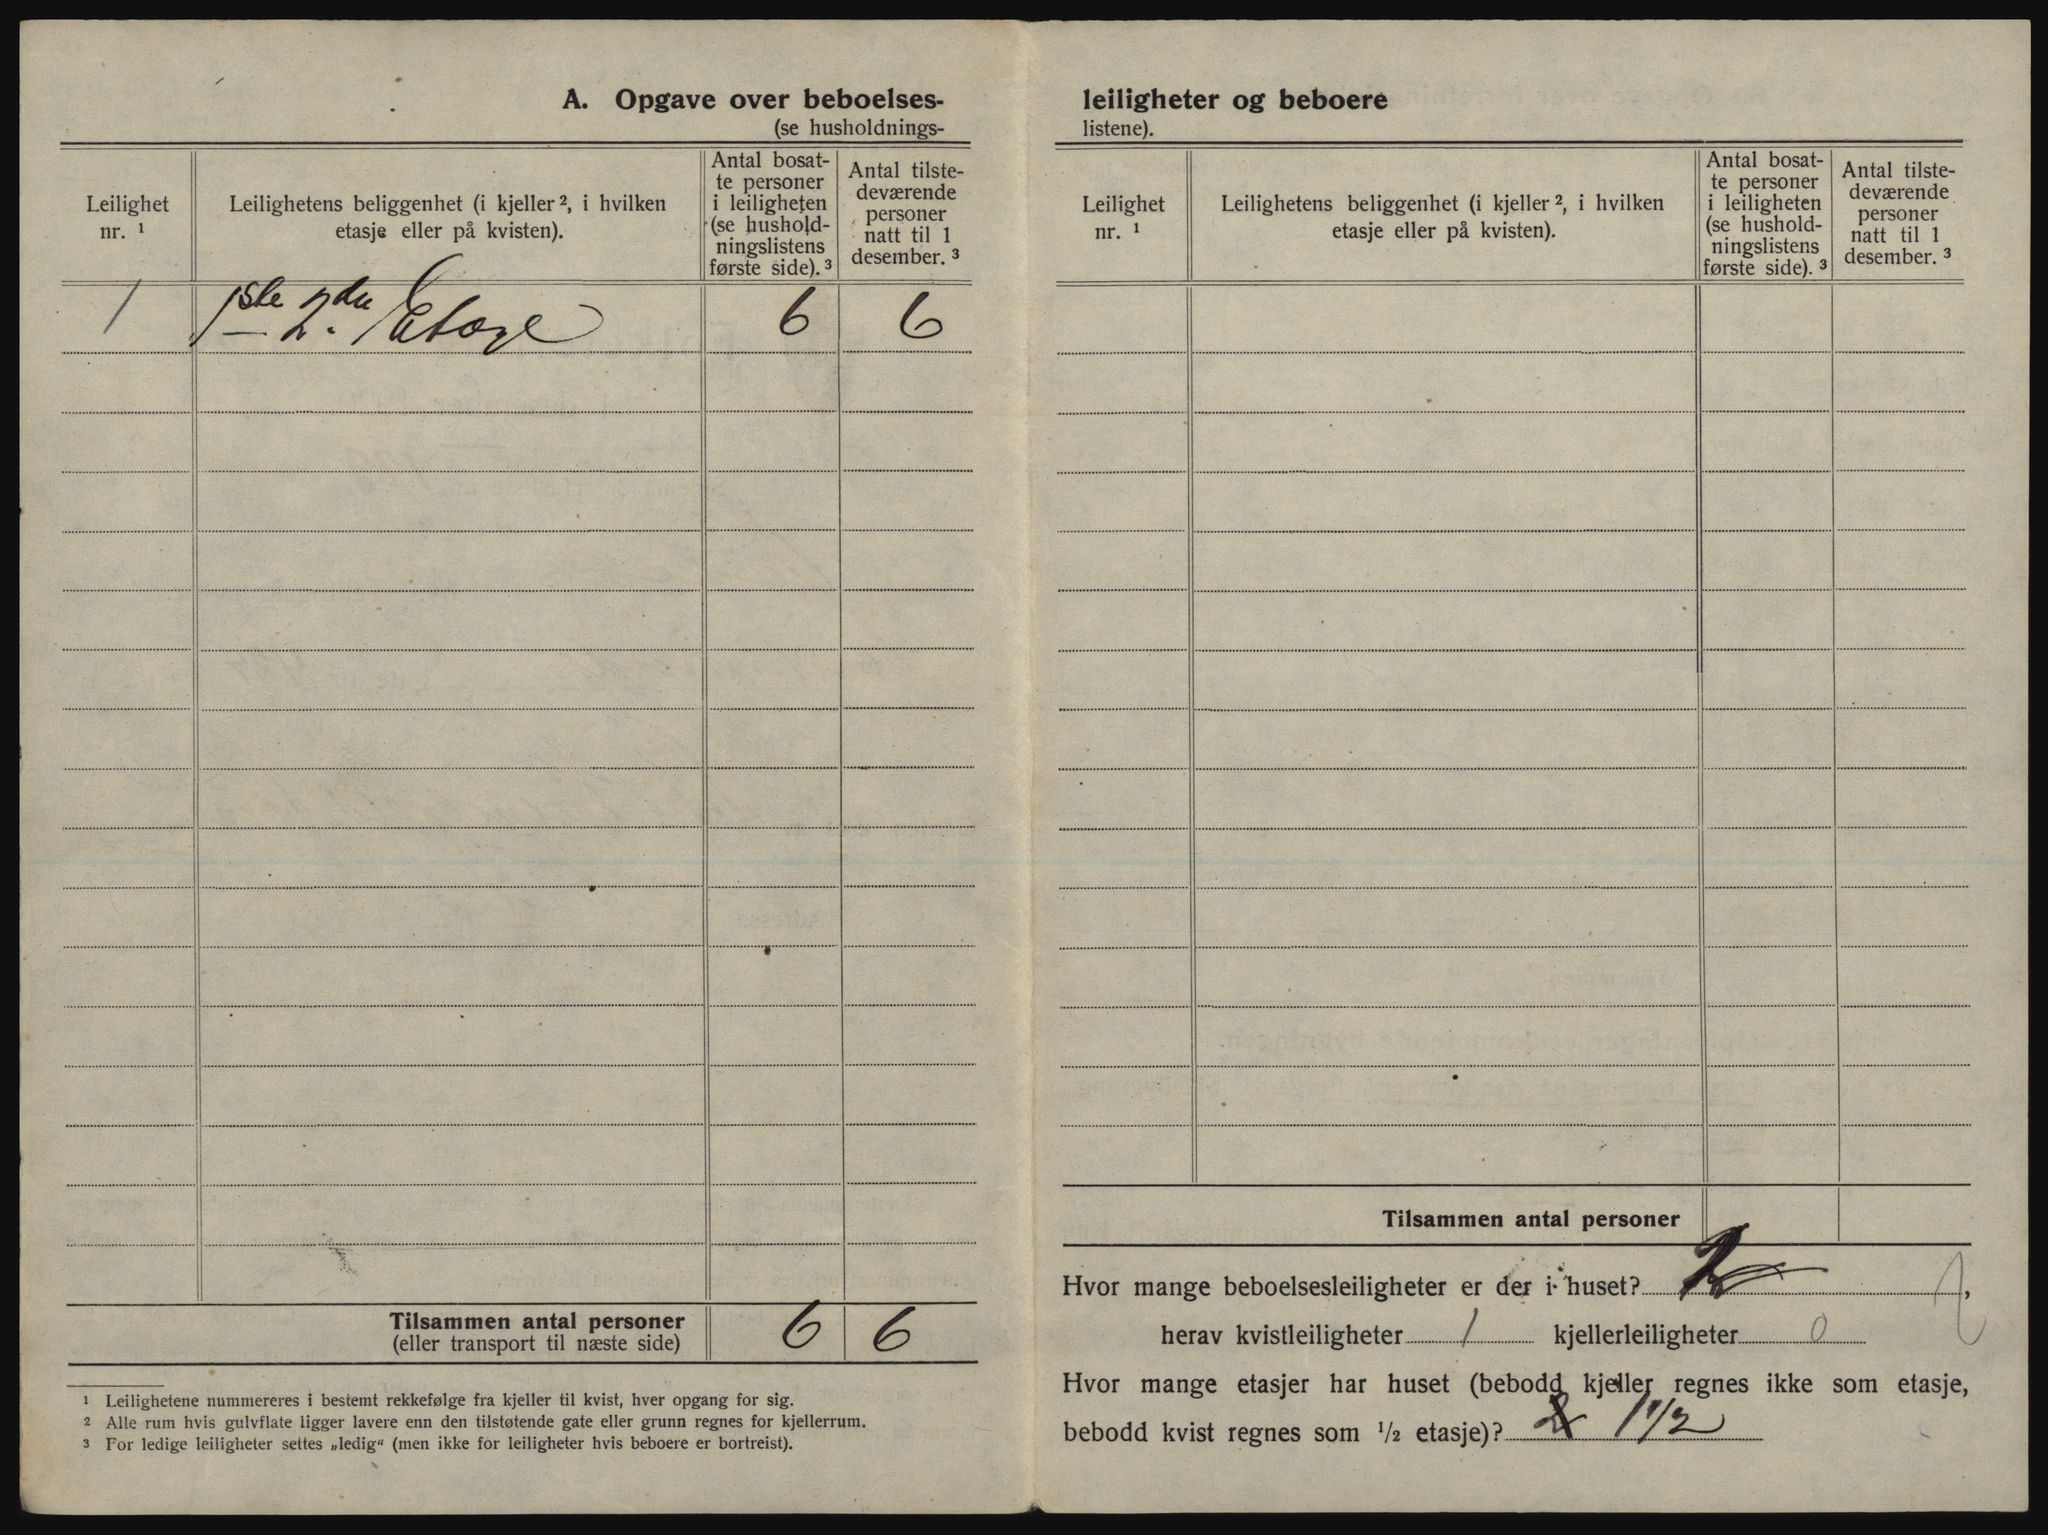 A. Opgave over beboelses-
(se husholdnings-
Leilighet
nr. ¹
Leilighetens beliggenhet (i kjeller ², i hvilken
etasje eller på kvisten).
Antal bosat-
te personer
i leiligheten
(se hushold-
ningslistens
første side). ³
Antal tilste-
deværende
personer
natt til 1
desember. ³
1 1ste 2den Etage 6 6
Tilsammen antal personer 6 6
(eller transport til næste side)
¹ Leilighetene nummereres i bestemt rekkefølge fra kjeller til kvist, hver opgang for sig.
² Alle rum hvis gulvflate ligger lavere enn den tilstøtende gate eller grunn regnes for kjellerrum.
³ For ledige leiligheter settes „ledig“ (men ikke for leiligheter hvis beboere er bortreist).
leiligheter og beboere
listene).
Leilighet
nr. ¹
Leilighetens beliggenhet (i kjeller ², i hvilken
etasje eller på kvisten).
Antal bosat-
te personer
i leiligheten
(se hushold-
ningslistens
første side). ³
Antal tilste-
deværende
personer
natt til 1
desember. ³
Tilsammen antal personer
Hvor mange beboelsesleiligheter er der i huset? 2,
herav kvistleiligheter 1 kjellerleiligheter 0
Hvor mange etasjer har huset (bebodd kjeller regnes ikke som etasje,
bebodd kvist regnes som ½ etasje)? 2 1 1/2